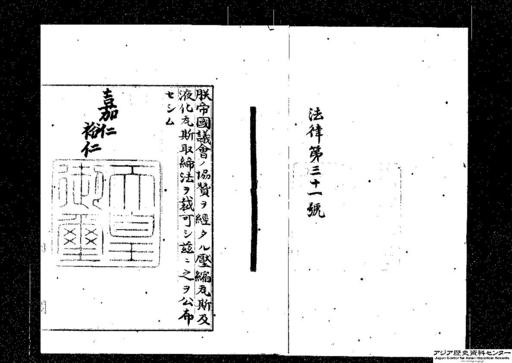 法律第三十一號
朕帝國議會ノ協贊ヲ經タル壓縮瓦斯及
液化瓦斯取締法ヲ裁可シ茲ニ之ヲ公布
セシム
嘉仁
裕仁
天皇
御璽
アジア歴史資料センター
Japan Center for Asian Historical Records